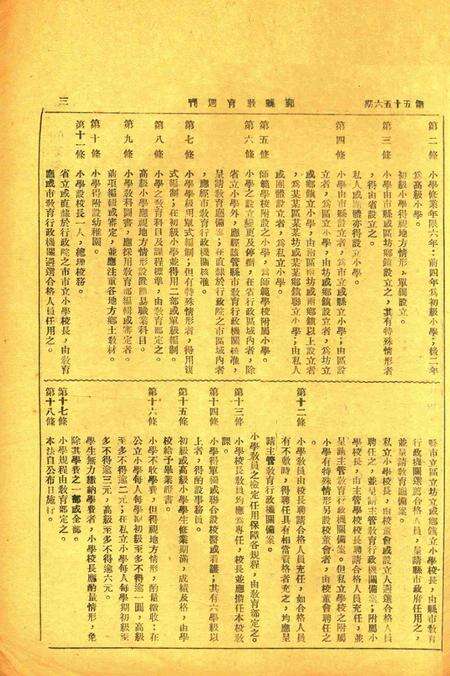 第五十五六期
鄞縣教育週刊
三
第二條
小學修業年限六年,前四年爲初級小學;後二年
爲高級小學。
初級小學得視地方情形,單獨設立。
第三條
小學由市縣或區坊鄉鎮設立之,其有特殊情形者
,得由省設立之。
私人或團體亦得設立小學。
第四條
小學由市縣設立者,爲市立或縣立小學;由區設
立者,爲區立小學;由坊或鄉鎮設立者,爲坊立
或鄉鎮立小學;由兩坊或兩鄉鎮以上設立者
,爲某坊某坊或某鄉鎮聯立小學;由私人
或團體設立者,爲私立小學。
第五條
師範學校附設之小學,爲師範學校附屬小學。
第六條
小學之設立變更及停辦,在受省行政區域內者,除
省立小學外,應經由主管縣市教育行政機關核准,
呈請教育廳備案;在直隸於行政院之市區域內者
,應經市教育行政機關核准。
第七條
小學學級用單式編制;但有特殊情形者,得用複
式編制;在初級小學並得用二部或單級編制。
第八條
小學之教育科目及課程標準,由教育部定之。
高級小學應視地方情形設置簡易職業科目。
第九條
小學教科圖書,應採用教育部編輯或審定者。
前項編輯或審定,並應注重各地方鄉土教材。
第十條
小學得附設幼稚園。
第十一條
小學設校長一人,總理校務。
省立或直隸於行政院之市市立小學校長,由教育
廳或市教育行政機關遴選合格人員任用之。
縣市立區立坊立或鄉鎮立小學校長,由縣市教育
行政機關遴選合格人員,呈請縣市政府任用之,
並呈請教育廳備案。
私立小學校長,由校董會或設立人遴選合格人員
聘任之,並呈請主管教育行政機關備案;附屬小
學校長,由主管學校校長聘請合格人員充任,並
呈請主管教育行政機關備案。但私立學校之附屬
小學有特殊情形另設校董會者,由校董會聘任之
第十二條
小學教員由校長聘請合格人員充任,如合格人員
有不敷時,得聘任具有相當資格者充之,均應呈
請主管教育行政機關備案。
小學教員之檢定任用保障各規程,由教育部定之。
第十三條
小學校長教員均應爲專任,校長並應擔任本校教
課。
第十四條
小學得單獨或聯合設校醫或看護;其有六學級以
上者,得酌設事務員。
第十五條
初級或高級小學學生修業期滿,成績及格,由學
校給予畢業證書。
第十六條
小學不收學費,但得視地方情形,酌量徵收;在
公立小學每人每學期初級至多不得過一圓,高級
至多不得過二元;在私立小學每人每學期初級至
多不得過三元,高級至多不得過六元。
學生無力繳納學費者,小學校長應酌量情形,免
除其學費之一部或全部。
第十七條
小學規程由教育部定之。
第十八條
本法自公布日施行。